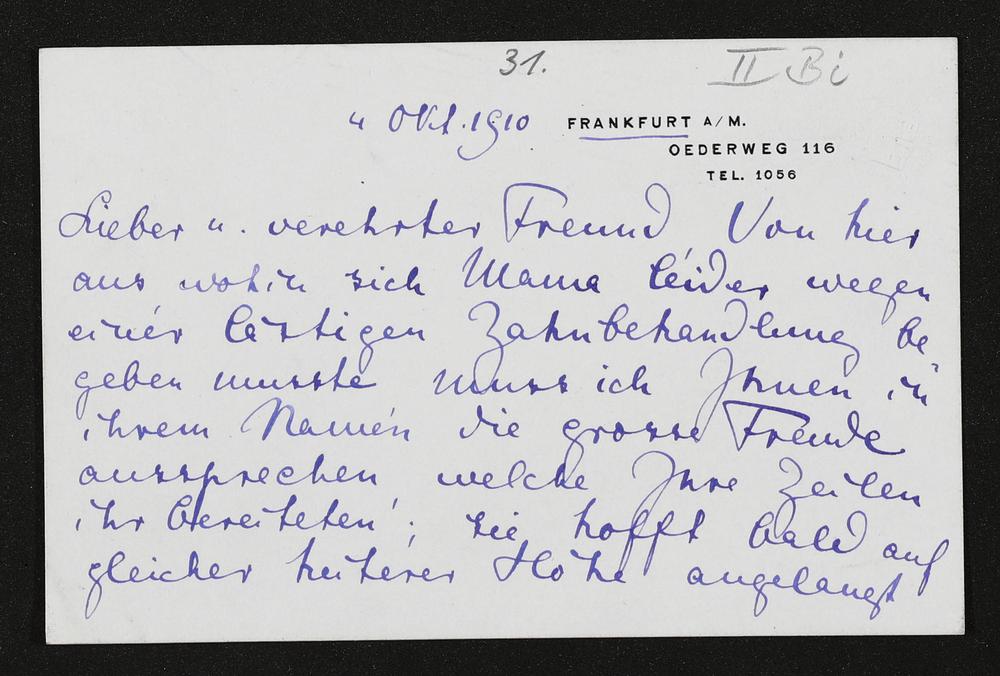 31.
II Bi
4 Okt. 1910
FRANKFURT A/M.
OEDERWEG 116
TEL. 1056
Lieber u. verehrter Freund, Von hier
aus wohin sich Mama leider wegen
einer lästigen Zahnbehandlung be-
geben musste muss ich Ihnen in
ihrem Namen die grosse Freude
aussprechen, welche Ihre Zeilen
ihr bereiteten; sie hofft bald auf
gleicher heiterer Höhe angelangt